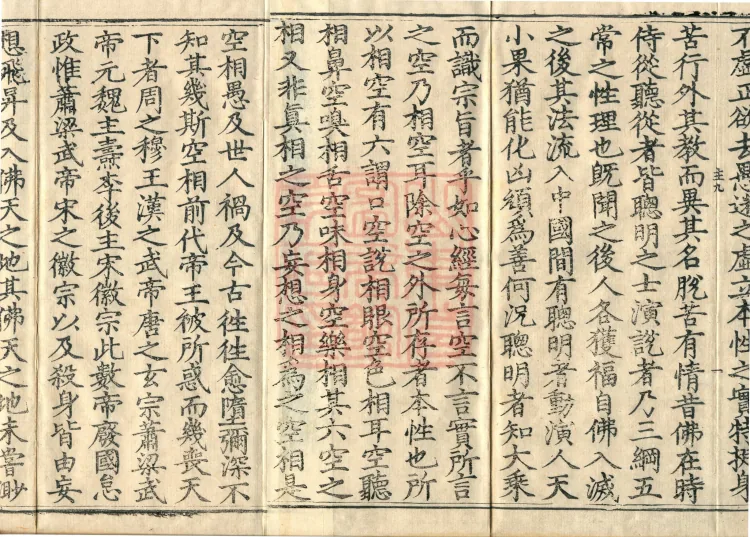 不虛正欲去愚迷之虛立本性之實特挺身
苦行外其教而異其名脫苦有情昔佛在時
侍從聽從者皆聰明之士演說者乃三綱五
常之性理也既聞之後人各獲福自佛入滅
之後其法流入中國間有聰明者動演人天
小果猶能化凶頑為善何況聰明者知大乘
而識宗旨者乎如心經每言空不言實所言
之空乃相空耳除空之外所存者本性也所
以相空有六謂口空說相眼空色相耳空聽
相鼻空嗅相舌空味相身空樂相其六空之
相又非真相之空乃妄想之相為之空相是
空相愚及世人禍及今古徃徃愈墮彌深不
知其幾斯空相前代帝王被所惑而幾喪天
下者周之穆王漢之武帝唐之玄宗蕭梁武
帝元魏主燾李後主宋徽宗此數帝廢國怠
政惟蕭梁武帝宋之徽宗以及殺身皆由妄
想飛昇及入佛天之地其佛天之地未嘗渺
主九